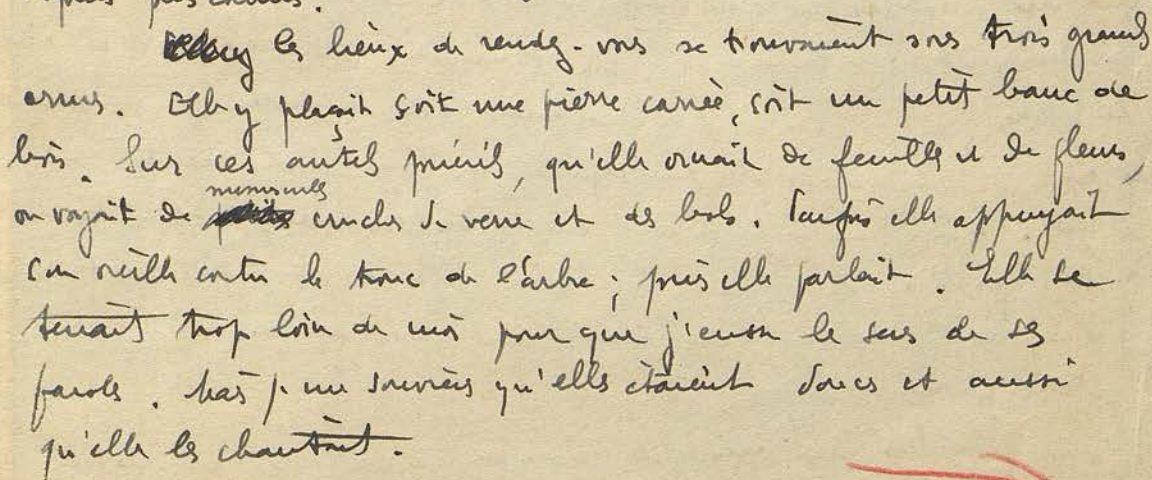 les lieux de rendez-vous se trouvaient sous trois grands
ormes. Elle y plaçait soit une pierre carrée, soit un petit banc de
bois. Sur ces autels puérils, qu'elle ornait de feuilles et de fleurs,
minuscules
on voyait de cruches de verre et des bols. Parfois elle appuyait
son oreille contre le tronc de l'arbre ; puis elle parlait. Elle se
tenait trop loin de moi pour que j'eusse le sens de ses
paroles. Mais je me souviens qu'elles étaient douces et aussi
qu'elle les chantait.